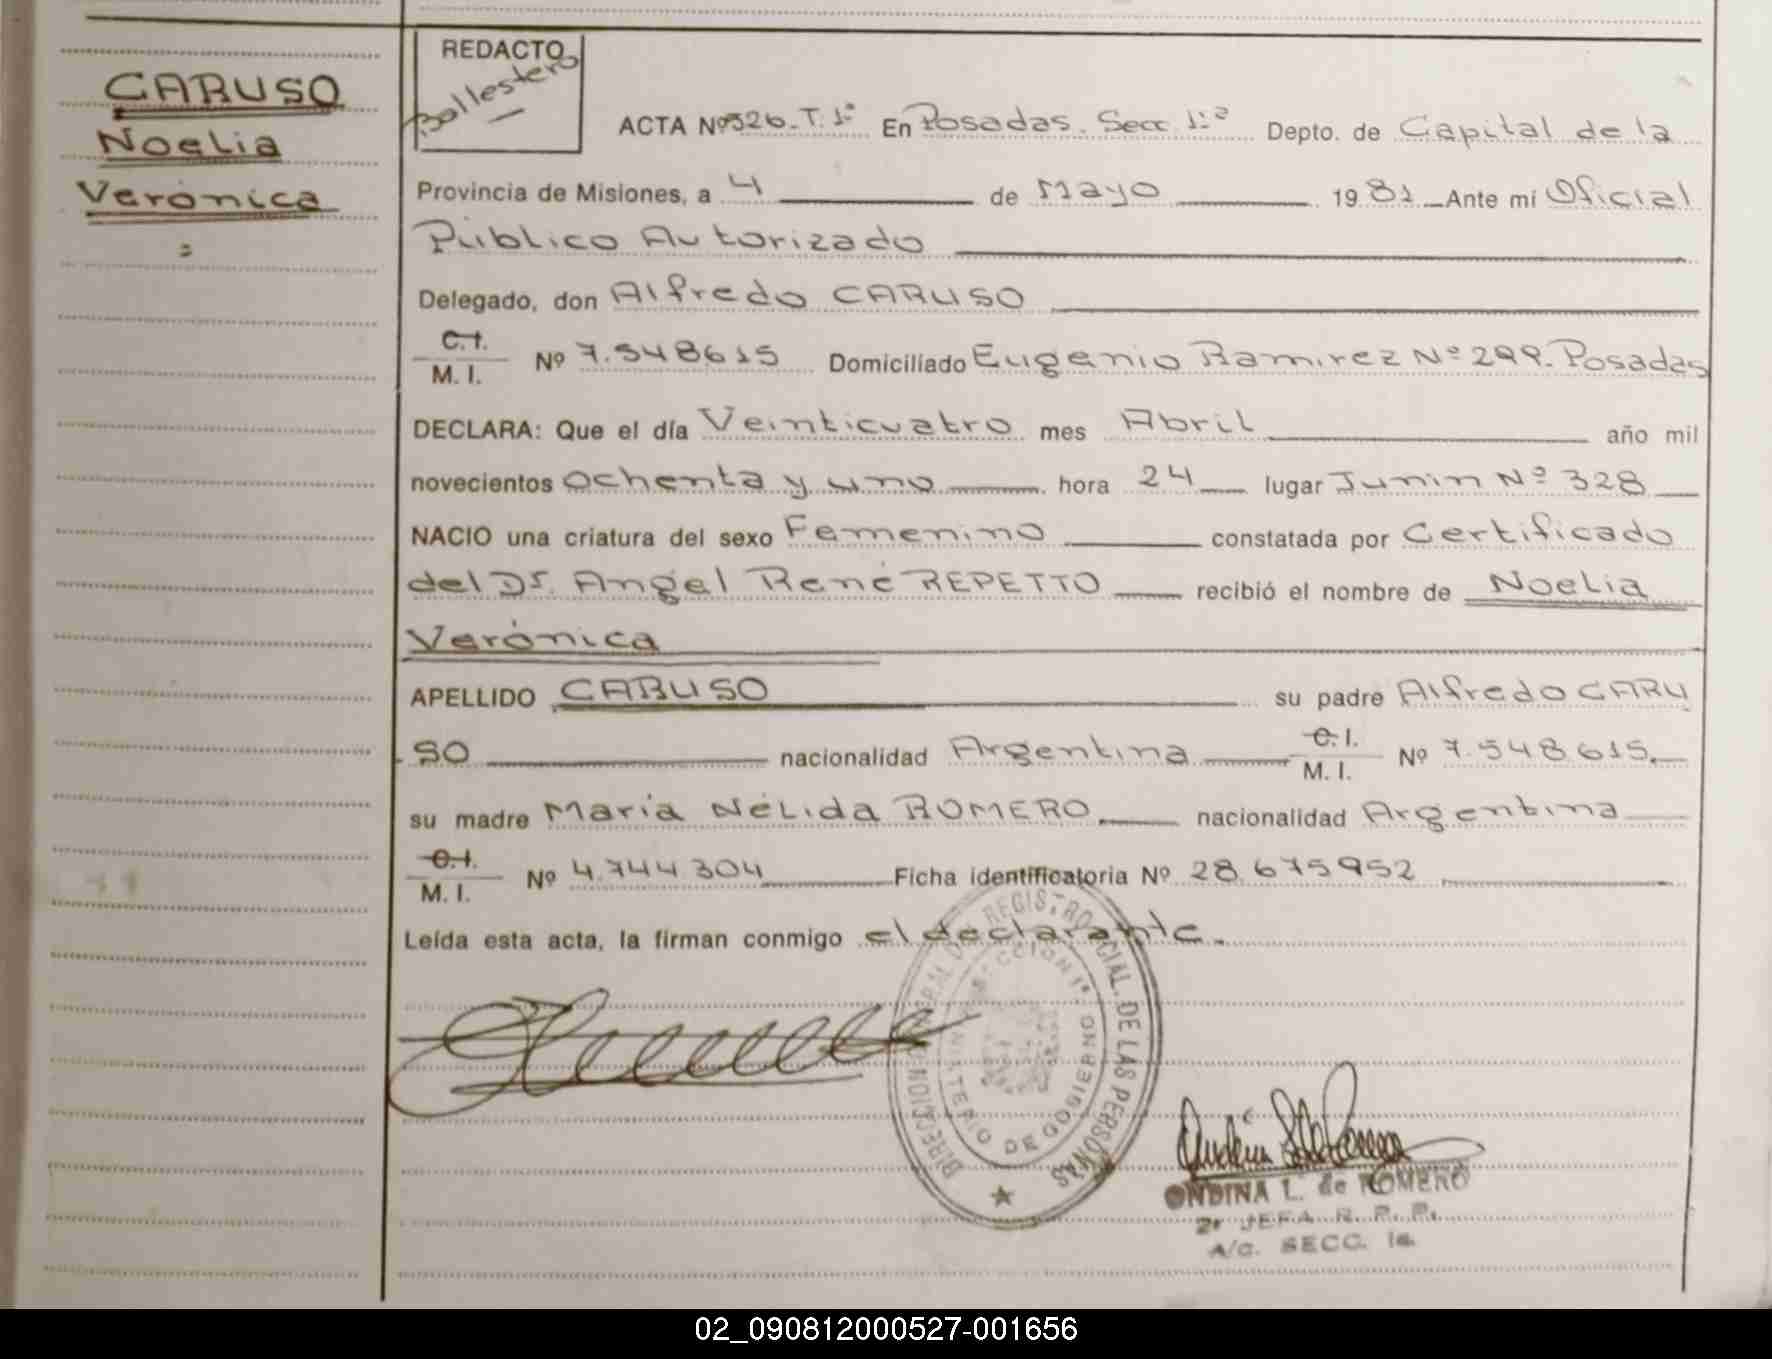 CARUSO
Noelia
Verónica
REDACTO
Ballestero
ACTA Nº 526. T. 1º En Posadas. Secc. 1:ª Depto. de Capital de la
Provincia de Misiones, a 4 de Mayo 1981 Ante mi Oficial
Público Autorizado
Delegado, don Alfredo CARUSO
C.I.
M. I. Nº 7.548615 Domiciliado Eugenio Ramirez Nº 299. Posadas
DECLARA: Que el día Veinticuatro mes Abril año mil
novecientos ochenta y uno hora 24 lugar Junin Nº 328
NACIO una criatura del sexo Femenino constatada por Certificado
del Dr. Angel René REPETTO recibió el nombre de Noelia
Verónica
APELLIDO CARUSO su padre Alfredo CARU
SO nacionalidad Argentina C.I. M. I. Nº 7.548.615.
su madre María Nélida ROMERO nacionalidad Argentina
C.I.
M. I. Nº 4.744.304 Ficha identificatoria Nº 28.675952
Leída esta acta, la firman conmigo el declarante.
DIRECCION GENERAL DEL REGISTRO PROVINCIAL DE LAS PERSONAS
SECCION 1ª
MINISTERIO DE GOBIERNO
ONDINA L. de ROMERO
2º JEFA R. P. P.
A/C. SECC. 1a.
02_090812000527-001656